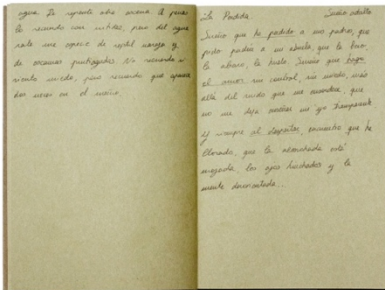 agua. La siguiente otra escena la
la recuerdo con nitidez, pero del agua
sale una especie de
de escamas puntiagudas. No recuerdo si
siento miedo, pero recuerdo que aparece
dos veces en el sueño.
La Perdida. Sueño adulto
Sueño que he perdido a mi padre, que
pierdo también a mi abuela, que la busco,
la abrazo, la huelo. Sueño que hago
el amor sin control, sin miedo, más
allá del ruido que me
no me deja mostrar mi yo transparente
Y siempre al despertar, encuentro que he
llorado, que la almohada está
mojada, los ojos hinchados y la
mente desorientada..